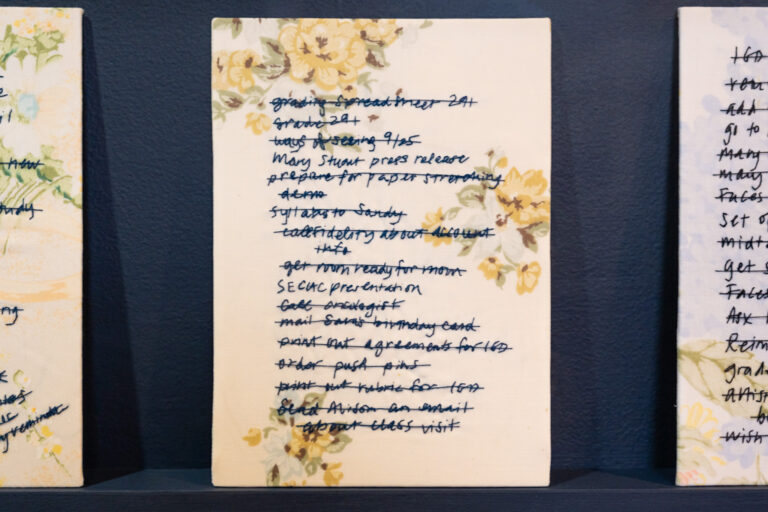 new
tudy
ng
y reminder
grading spreadsheet 291
grade 291
ways of seeing 9/25
Mary Stuart press release
prepare for paper stretching
demo
syllabs to Sandy
call Fidelity about account
info
get room ready for mom
SECAC presentation
call
mail Sara's birthday card
print out agreements for IGD
order push pins
print out rubric for IGD
Send Alison an email
about class visit
IGD
add
go to
many
many
Faces
set of
midt
get s
Faces
Ask
Reim
grad
artis
wish